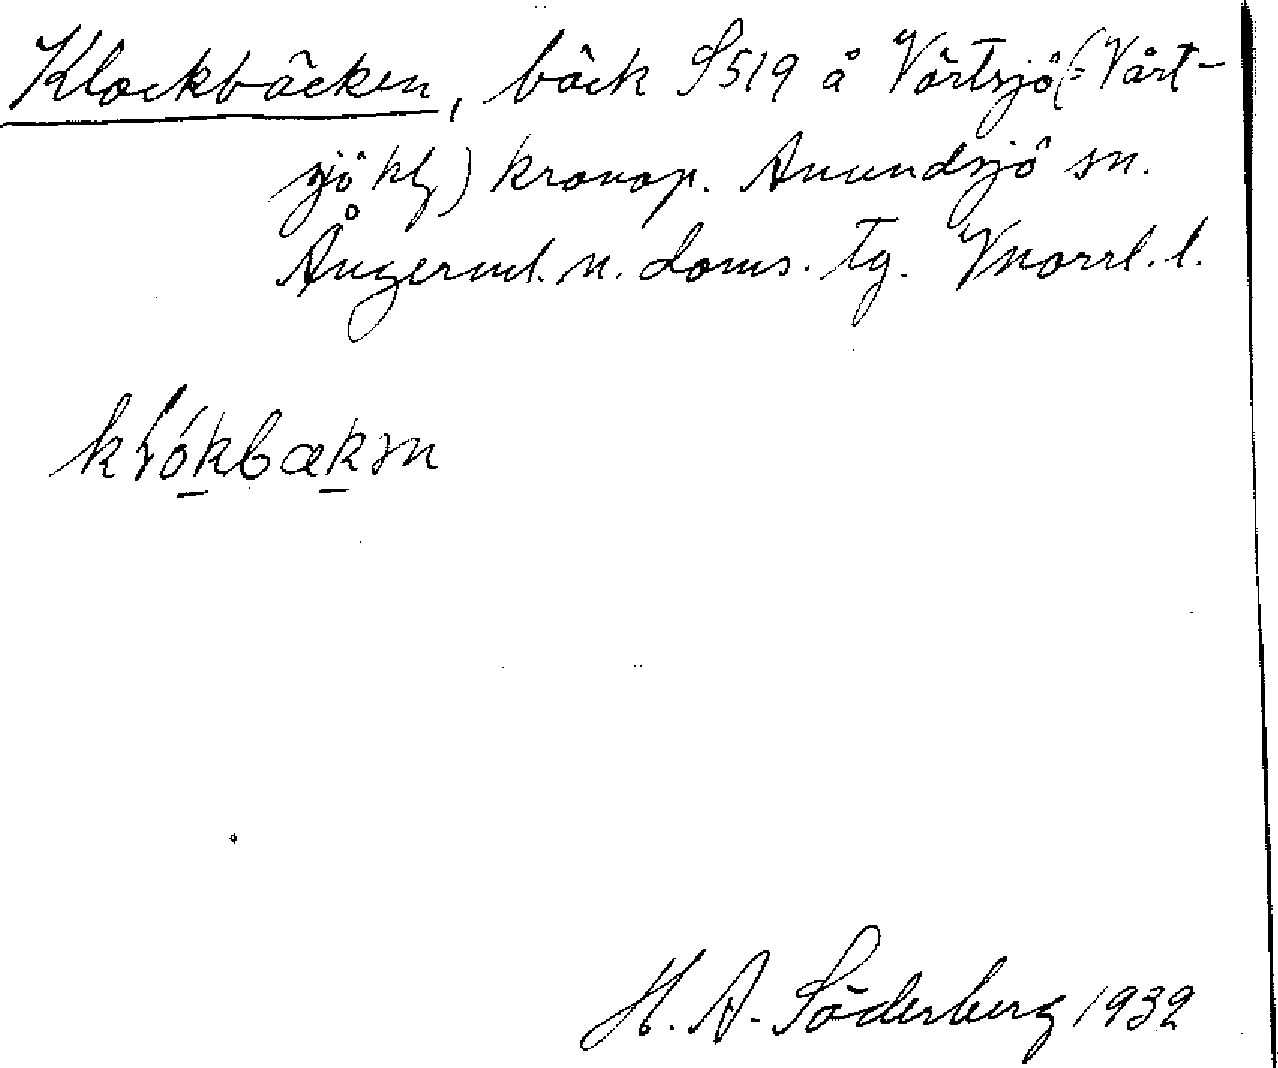 Klockbäcken, bäck S519 å Vårtsjö (= Vårt-
sjö klg) kronop. Anundsjö sn.
Ångerml. n. doms. tg. Vnorrl. l.
H. A. Söderberg 1932